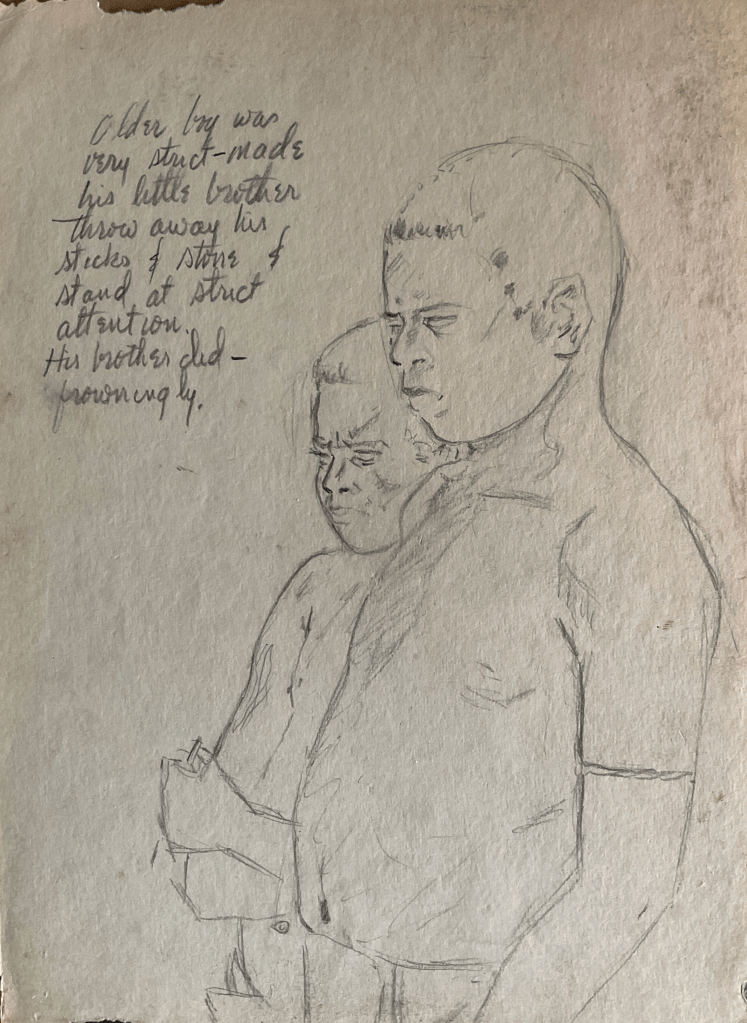 Older boy was
very strict-made
his little brother
throw away his
sticks & stone &
stand at strict
attention.
His brother did -
frowningly.